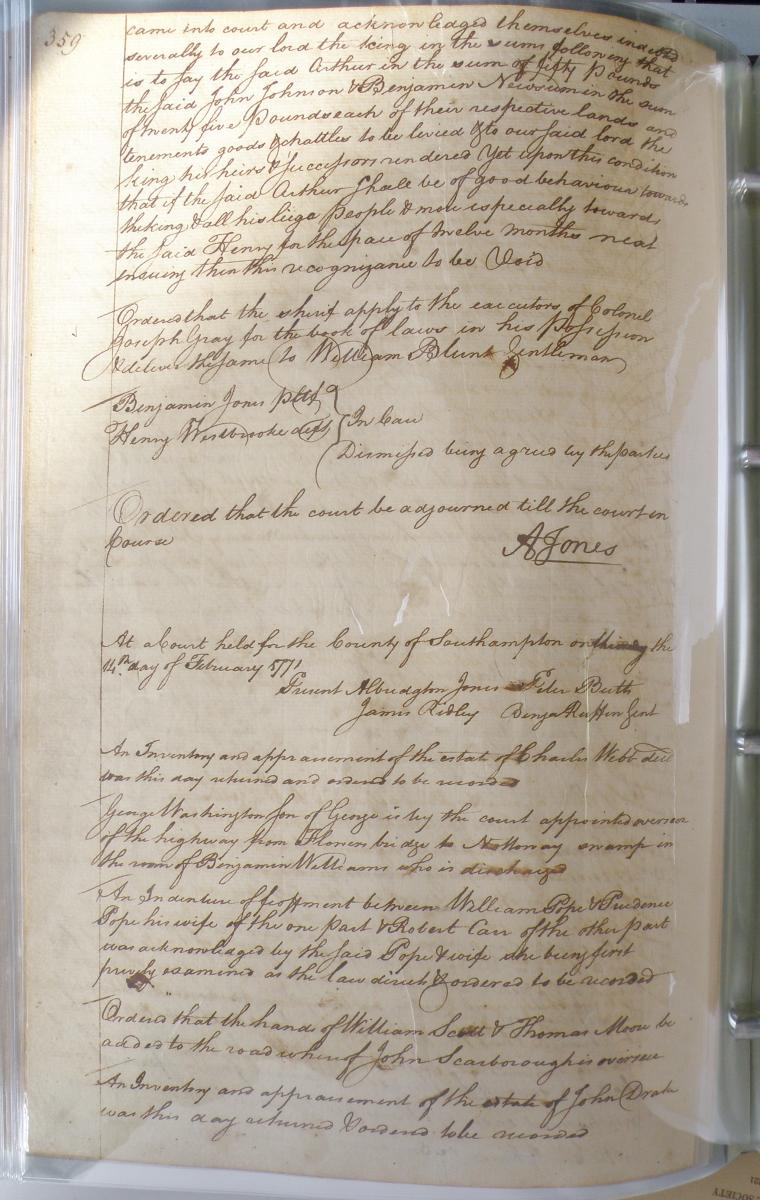 359
came into court and acknowledged themselves indebted
severally to our lord the king in the sums following that
is to say the said Arthur in the sum of fifty Pounds
the said John Johnson & Benjamin Newsum in the sum
of twenty five Pounds each of their respective lands and
tenements goods & chattles to be levied & to our said lord the
king his heirs & successors rendered Yet upon this condition
that if the said Arthur shall be of good behaviour towards
the king & all his liege people & more especially towards
the said Henry for the space of twelve months next
ensuing then this recognizance to be Void
Ordered that the sherif apply to the executors of Colonel
Joseph Gray for the book of laws in his Possession
& deliver the same to William Blunt Gentleman
Benjamin Jones pltf
Henry Westbrooke deft
In Case
Dismissed being agreed by the parties
Ordered that the court be adjourned till the court in
Course
AJones
At a Court held for the County of Southampton on the
14th day of February 1771
Present Albridgton Jones Peter Butts
James Ridley Benja Ruffin Gent
An Inventory and appraisement of the estate of Charles Webb decd
was this day returned and ordered to be recorded
George Washington son of George is by the court appointed overseer
of the highway from Flowers bridge to Nottoway swamp in
the room of Benjamin Williams who is discharged
An Indenture of feoffment between William Pope & Prudence
Pope his wife of the one part & Robert Carr of the other part
was acknowledged by the said Pope & wife she being first
privily examined as the law directs & ordered to be recorded
Ordered that the hands of William Scott & Thomas Moore be
added to the road whereof John Scarborough is oversee
An Inventory and appraisement of the estate of John Drake
was this day returned & ordered to be recorded
SOCIETY